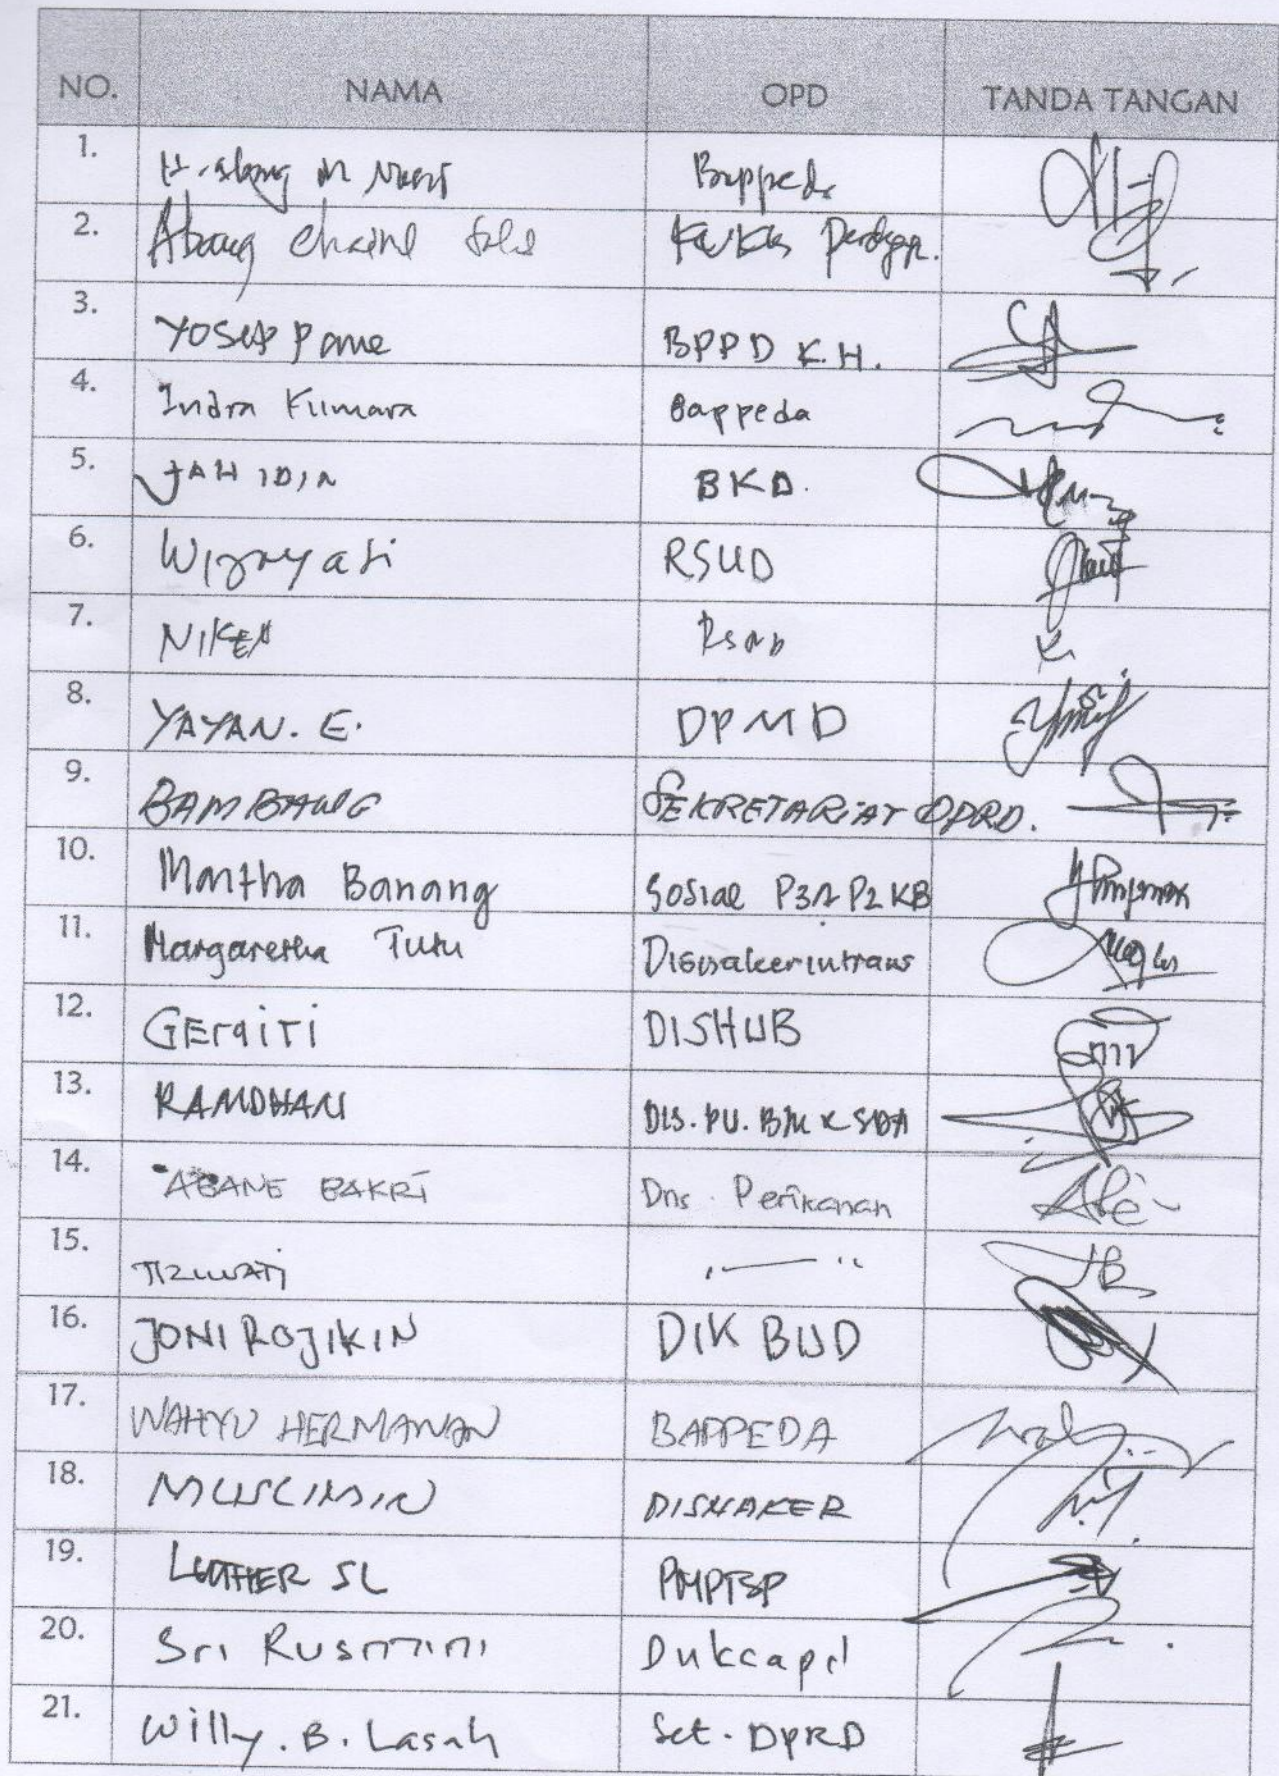 NO. NAMA OPD TANDA TANGAN
1. Bappeda
2. Abang
3. Yosep Pame BPPD K.H.
4. Indra Kumara Bappeda
5. JAHIDIN BKD.
6. Wijayati RSUD
7. NIKEN
8. YAYAN. E. DPMD
9. BAMBANG SEKRETARIAT DPRD.
10. Martha Banang Sosial P3A P2KB
11. Margaretha Tutu Disnakerintrans
12. GERGITI DISHUB
13. RAMDHANI DIS. PU. BM & SDA
14. ABANG BAKRI Dns. Perikanan
15.
16. JONI ROJIKIN DIK BUD
17. WAHYU HERMAWAN BAPPEDA
18. MUSLIMIN DISNAKER
19. LUTHER SL PMPTSP
20. Sri Rusmini Dukcapil
21. Willy. B. Lasah Set. DPRD